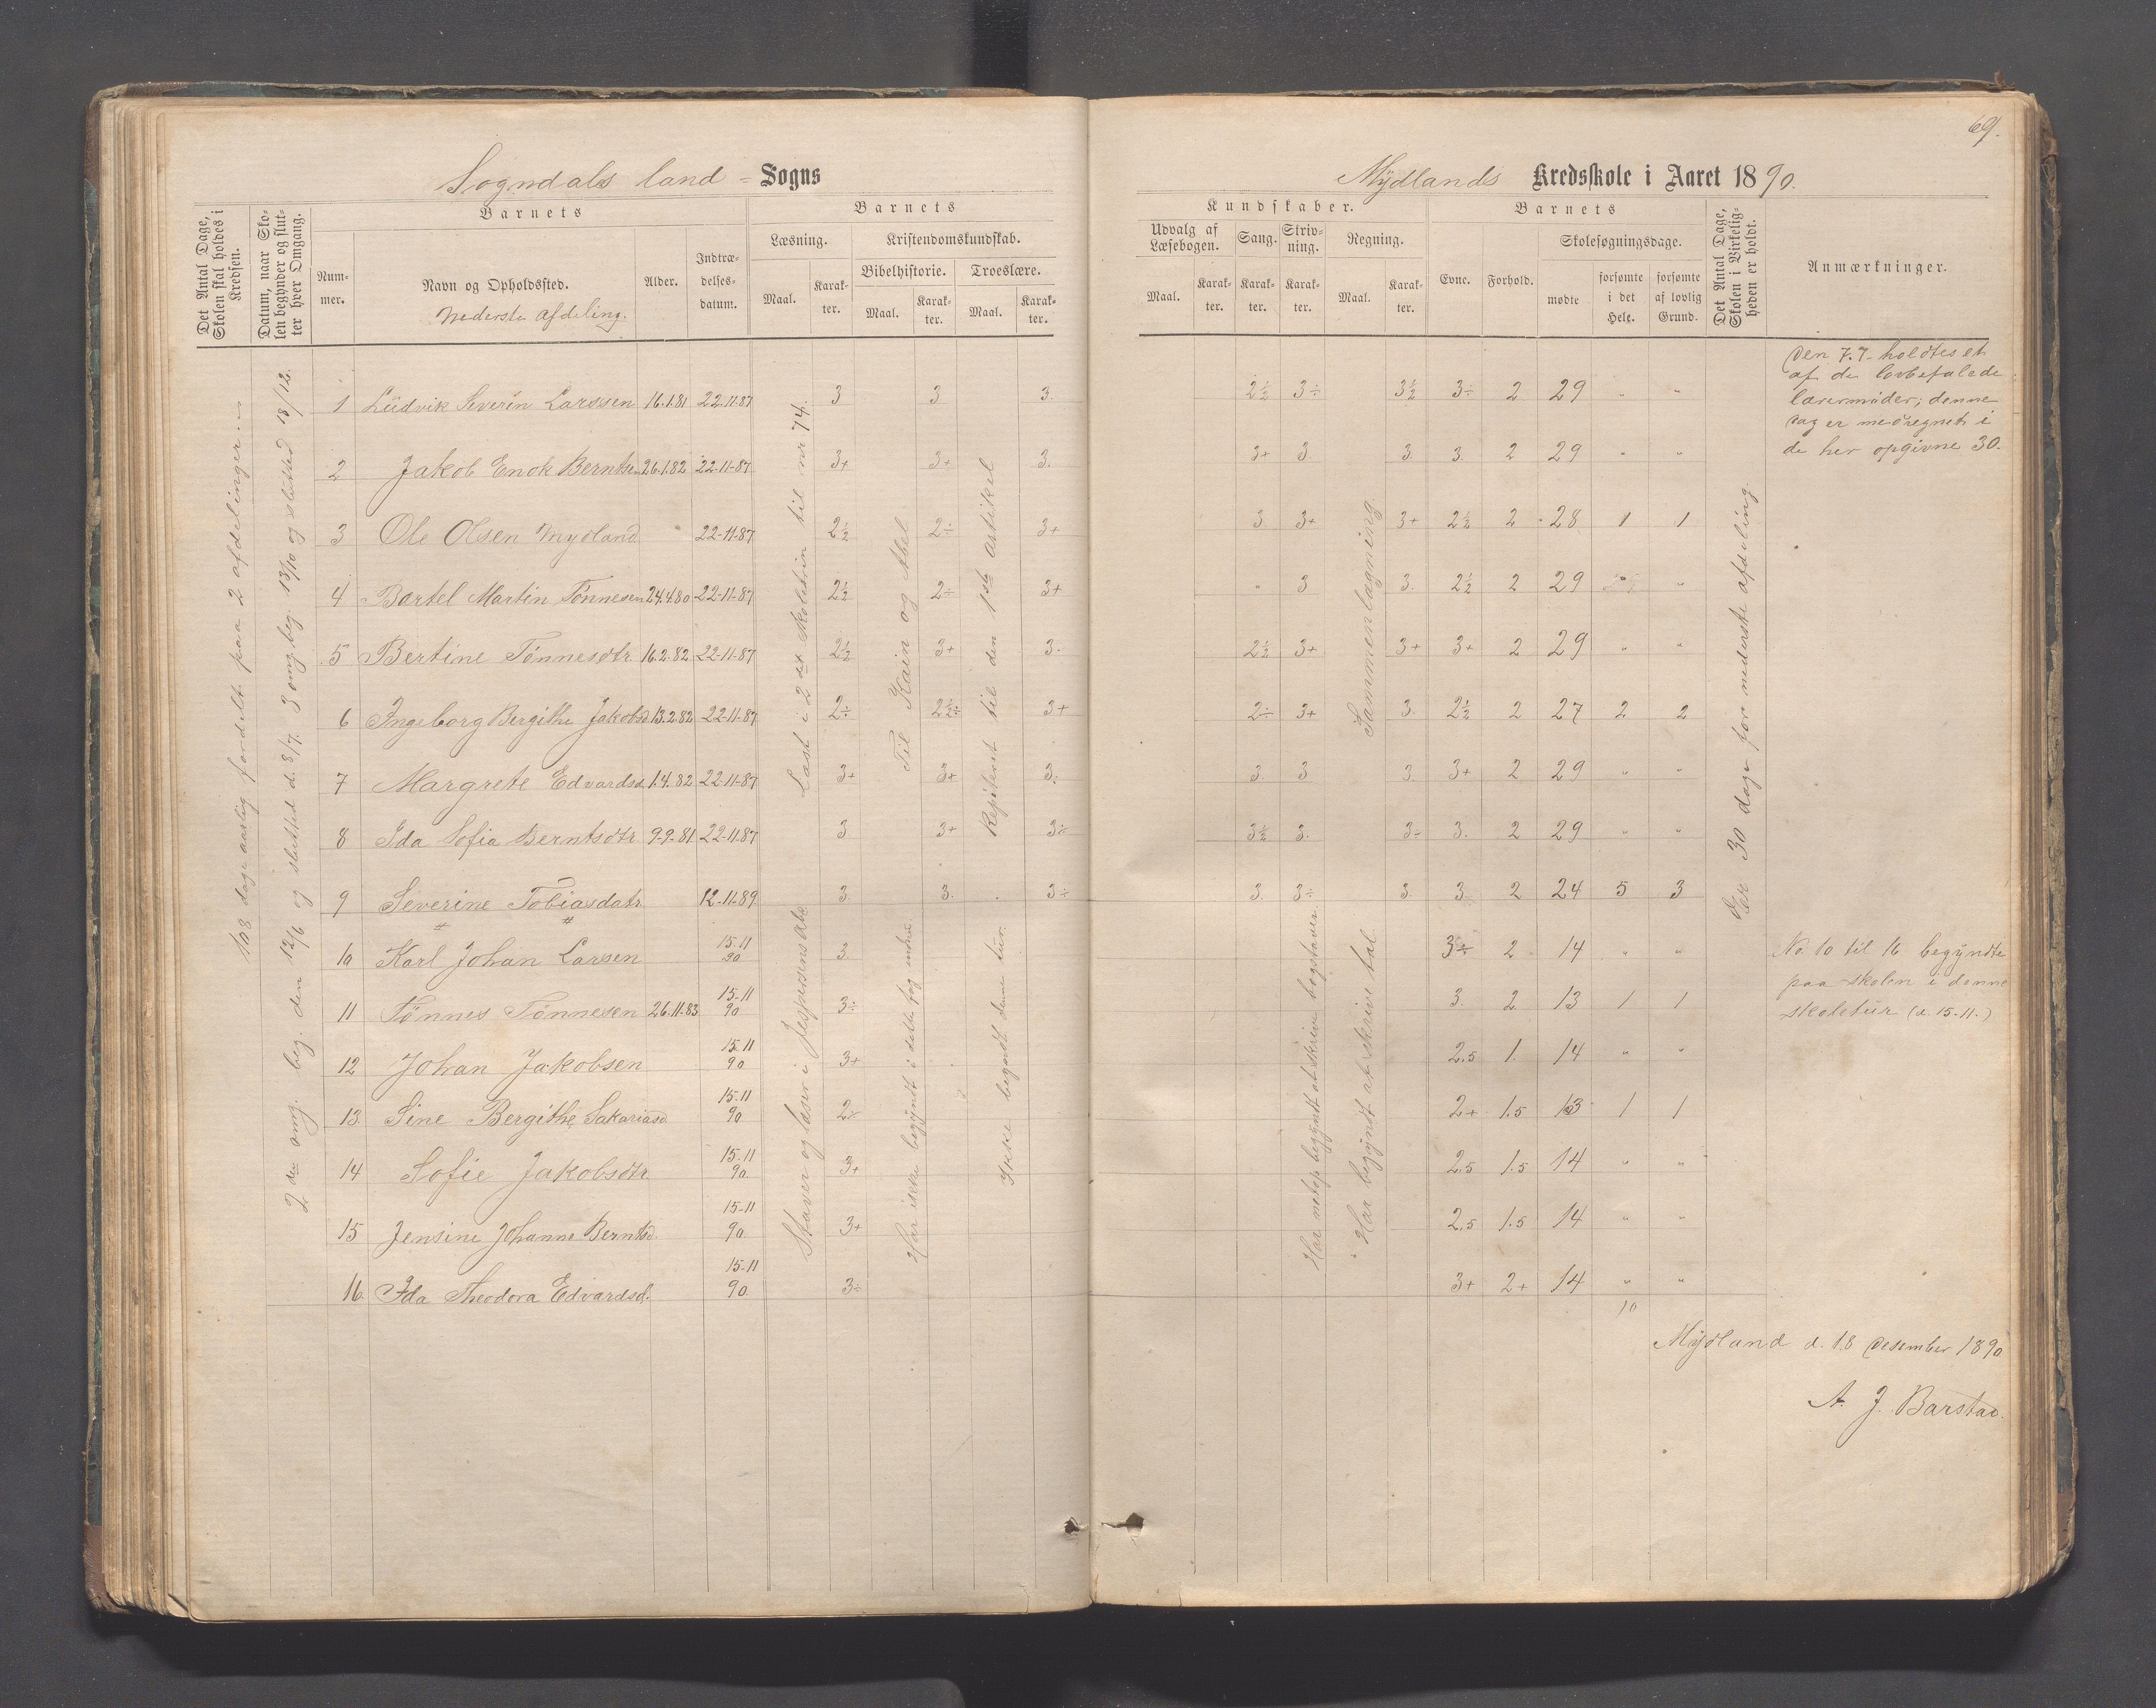 69.
Sogndals land - Sogns
Mydlands Kredsskole i Aaret 1890.
Det Antal Dage, Skolen skal holdes i Kredsen.
Datum, naar Skolen begynder og slutter hver Omgang.
Nummer.
Barnets
Navn og Opholdssted.
Nederste afdeling.
Alder.
Indtrædelsesdatum.
Barnets
Læsning.
Maal. Karakter.
Kristendomskundskab.
Bibelhistorie.
Maal. Karakter.
Troeslære.
Maal. Karakter.
Kundskaber.
Udvalg af Læsebogen.
Maal. Karakter.
Sang. Karakter.
Skrivning. Karakter.
Regning.
Maal. Karakter.
Barnets
Evne. Forhold.
Skolesøgningsdage.
mødte
forsømte i det Hele.
forsømte af lovlig Grund.
Det Antal Dage, Skolen i Virkeligheden er holdt.
Anmærkninger.
108 dage aarlig fordelt paa 2 afdelinger.
2den omg. beg. den 12/6 og slutted d. 8/7. 3 omg. beg. 13/10 og slutted 18/12.
Læst i 2det skoletrin til nr 74.
Til Kain og Abel
Repiterest til den 1ste artikel
Sammenlægning
Er 30 dage for nederste afdeling.
1 Ludvik Severin Larssen 16.1.81 22.11.87 3 3 3. 2½ 3÷ 3½ 3÷ 2 29 " "
2 Jakob Enok Berntsen 26.1.82 22-11-87 3+ 3+ 3. 3+ 3. 3. 3. 2 29 " "
3 Ole Olsen Mydland 22-11-87 2½ 2÷ 3+ 3 3+ 3+ 2½ 2 28 1 1
4 Bartel Martin Tønnesen 24.4.80 22-11-87 2½ 2÷ 3+ " 3 3. 2½ 2 29 "
5 Bertine Tønnesdtr 16.2.82 22-11-87 2½ 3+ 3. 2½ 3+ 3+ 3+ 2 29 " "
6 Ingeborg Bergithe Jakobsd. 13.2.82 22-11-87 2÷ 2½÷ 3+ 2÷ 3+ 3. 2½ 2 27 2 2
7 Margrete Edvardsd. 1.4.82 22-11-87 3+ 3+ 3÷ 3. 3 3. 3+ 2 29 " "
8 Ida Sofia Berntsdtr 9-9-81 22-11-87 3. 3+ 3÷ 3½ 3. 3÷ 3. 2 29 " "
9 Severine Tobiasdatr 12-11-89 3. 3. 3÷ 3. 3÷ 3. 3. 2 24 5 3
10 Karl Johan Larsen 15-11 90 3 3÷ 2 14 " "
11 Tønnes Tønnesen 26.11.83 15-11 90 3÷ 3. 2 13 1 1
12 Johan Jakobsen 15.11 90 3+ 2,5 1. 14 " "
13. Sine Bergithe Sakariasd 15-11 90 2÷ 2+ 1.5 13 1 1
14 Sofie Jakobsdtr 15-11 90. 3+ 2,5 1.5 14 " "
15 Jensine Johanne Berntsd. 15-11 90. 3+ 2,5 1.5 14 " "
16 Ida Theodora Edvardsd. 15-11 90 3÷ 3+ 2+ 14 " "
10
Staver og læser i Jespersens Abc
Har ikke begyndt i dette fag endnu
Ikke begyndt denne tur.
Har netop begyndt at skrive bogstaver.
Har begyndt at skrive tal
Den 7.7. holdtes et
af de lovbefalede
lærermøder; denne
dag er medregnet i
de her opgivne 30.
No. 10 til 16 begyndte
paa skolen i denne
skoletur (d. 15-11.)
Mydland d. 18 Desember 1890
A. J. Barstad.